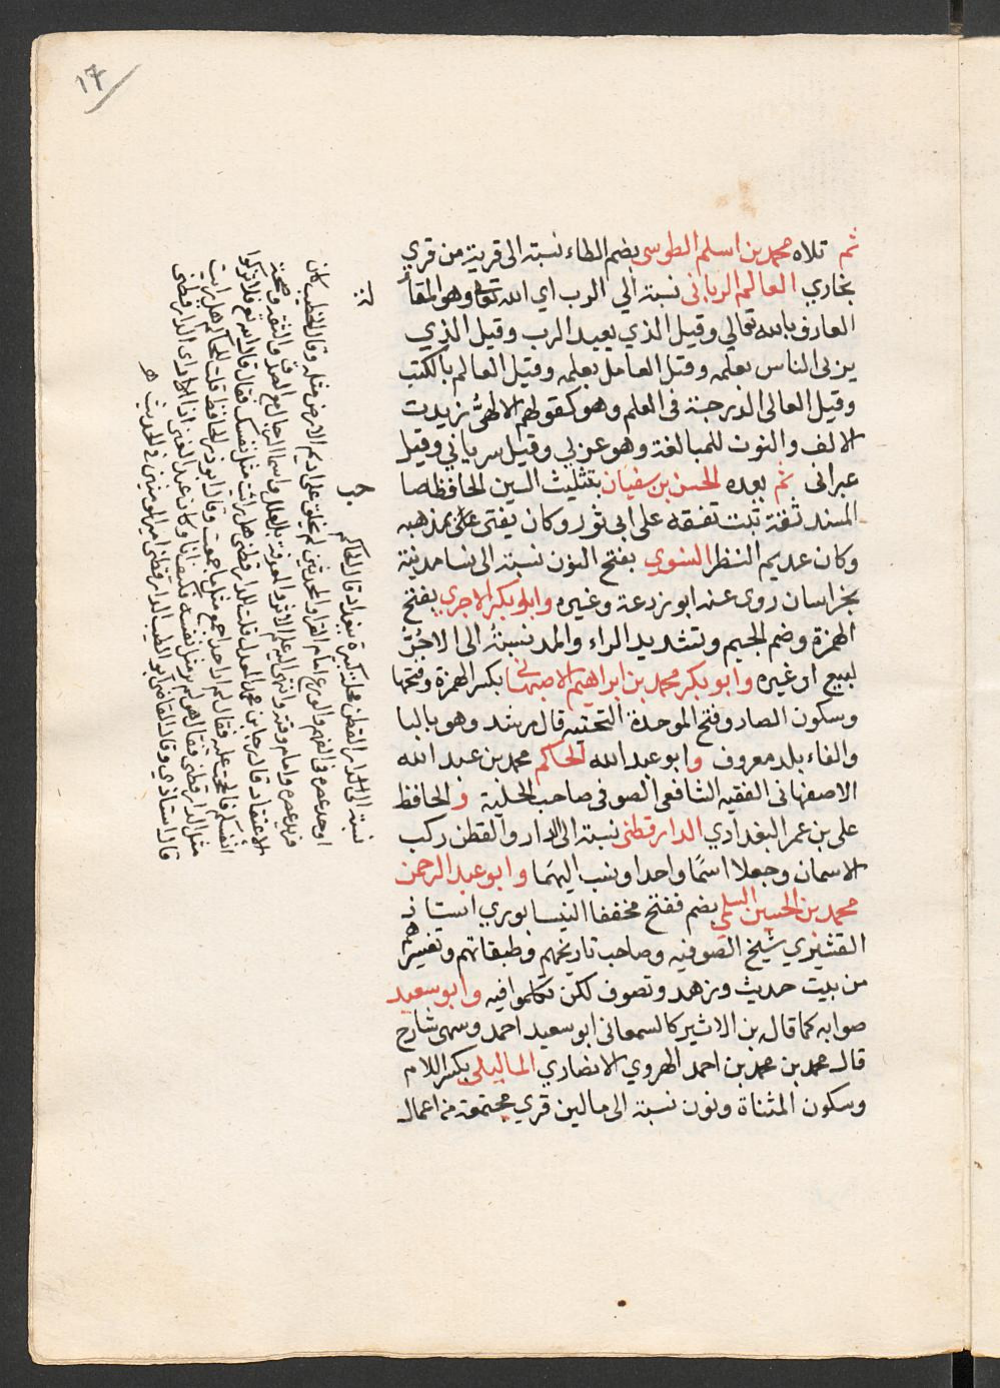 ١٧
ثم تلاه محمد بن اسلم الطوسى بضم الطاء نسبة الى قرية من قري
بخاري العالم الربانى نسبة الي الرب اي الله تعالى وهو المقا
العارف بالله تعالي وقيل الذي يعبد الرب وقيل الذي
يربى الناس بعلمه وقيل العامل بعلمه وقيل العالم بالكتب
وقيل العالى الدرجة فى العلم وهو كقولهم الالهىّ زيدت
الالف والنون للمبالغة وهو عربي وقيل سرياني وقيل
عبرانى ثم بعده الحسن بن سفيان بتثليث السين الحافظ صا
المسند ثقة ثبت تفقه على ابى ثور وكان يفتى على مذهبه
وكان عديم النظر النسوي بفتح النون نسبة الى نسا مدينة
بخراسان روى عنه ابو زرعة وغيره وابو بكر الاجري بفتح
الهمزة وضم الجيم وتشديد الراء والمد نسبة الى الاجرّ
لبيع او غيره وابو بكر محمد بن ابراهيم الاصبهانى بكسر الهمزة وفتحها
وسكون الصاد وفتح الموحدة التحتيه قال مرشد وهو بالبا
والفاء بلد معروف وابو عبد الله الحاكم محمد بن عبد الله
الاصفهانى الفقيه الشافعى الصوفى صاحب الحلية والحافظ
على بن عمر البغدادي الدارقطنى نسبة الى الدار والقطن ركب
الاسمان وجعلا اسمًا واحدا ونسب اليهما وابو عبد الرحمن
محمد بن الحسين السلمي بضم ففتح مخففا النيسابوري استاذ
القشيري شيخ الصوفيه وصاحب تاريخهم وطبقاتهم وتفسيرهم
من بيت حديث وزهد وتصوف لكن تكلموا فيه وابو سعيد
صوابه كما قال بن الاثير كالسمعانى ابو سعيد احمد وسهى شارح
قال محمد بن محمد بن احمد الهروي الانصاري المالينى بكسر اللام
وسكون المثناة ونون نسبة الى مالين قري مجتمعة من اعمال
نسبة الى الدار القطن محلة كبيرة ببغداد قال الحاكم
اوحد عصره فى الفهم والورع امام القرا والمحدثين لم يخلق على اديم الارض مثله وقال الخطيب كان
فريد عصره وامام وقته وانتهى اليه علم الاثر والمعرفة بالعلل واسما الرجال مع الصدق والثقة وصحة
الاعتقاد قال رجا بن محمد المعدل قلت للدارقطنى هل رايت مثل نفسك فقال قال الله تعالى فلا تزكوا
انفسكم فالححت عليه فقال لم ار احدا جمع مثل ما جمعت وقال ابو ذر الحافظ قلت للحاكم هل رايت
مثل الدارقطنى فقال هو لم ير مثل نفسه فكيف انا وكان عبد الغنى اذا ذكر الدارقطنى
قال استاذي وقال القاضى ابو الطيب الدارقطنى امير المومنين فى الحديث ه